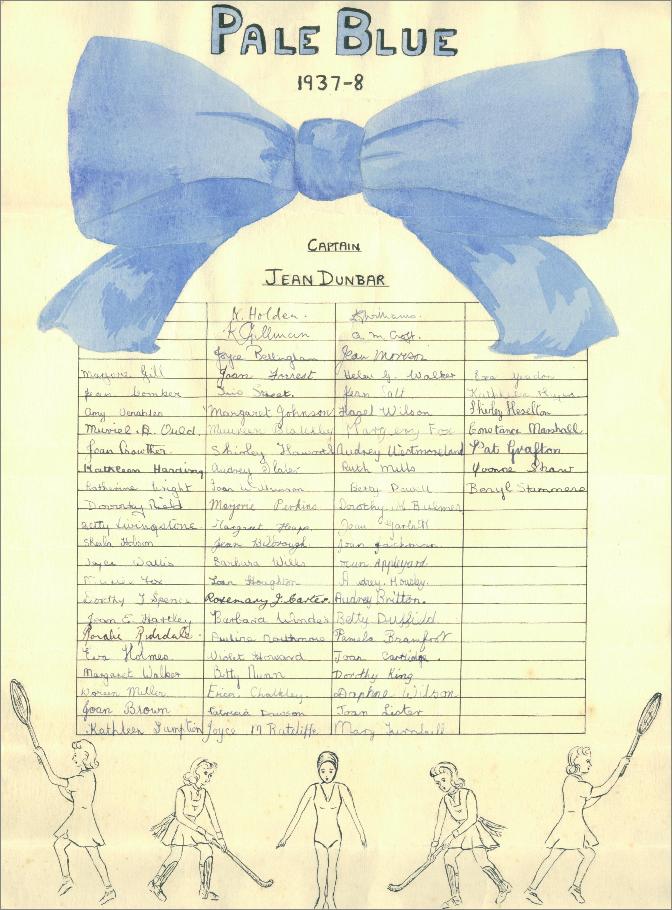 PALE BLUE
1937-8
CAPTAIN
JEAN DUNBAR
N. Holden.
K Gillman
Joyce Bellingham Jean Moreson
Marjorie Gill Joan Forrest. Helen G. Walker
Jean Street. Jean Salt
Amy Margaret Johnson Hazel Wilson Shirley Heselton
Muriel A. Ould. Maureen Blakeley Margery Fox Constance Marshall
Joan Crowther. Shirley Haworth Audrey Westmoreland Pat Grafton
Kathleen Harding Audrey Slater Ruth Mills Yvonne Shaw
Katherine Wright Joan Wilkinson Betty Powell Beryl Stammers
Dorothy Reid Marjorie Perkins Dorothy M. Bulmer
Betty Livingstone. Margaret Heaps. Jean Garlatt
Sheila Hobson Jean Joan Jackman
Joyce Wallis Barbara Wills Jean Appleyard
Fox Joan Houghton Audrey Housley.
Dorothy J Spence Rosemary J. Carter. Audrey Britton.
Joan E. Hartley Barbara Winder Betty Duffield.
Rosalie Ridsdale. Pauline Northmore Pamela Branfoot
Eva Holmes Violet Howard Joan Cartridge.
Margaret Walker Betty Nunn Dorothy King
Doreen Miller Erica Chalkley. Daphne Wilson
Joan Brown Patricia Dawson Joan Lister
Kathleen Sumption Joyce M Ratcliffe Mary Turnbull